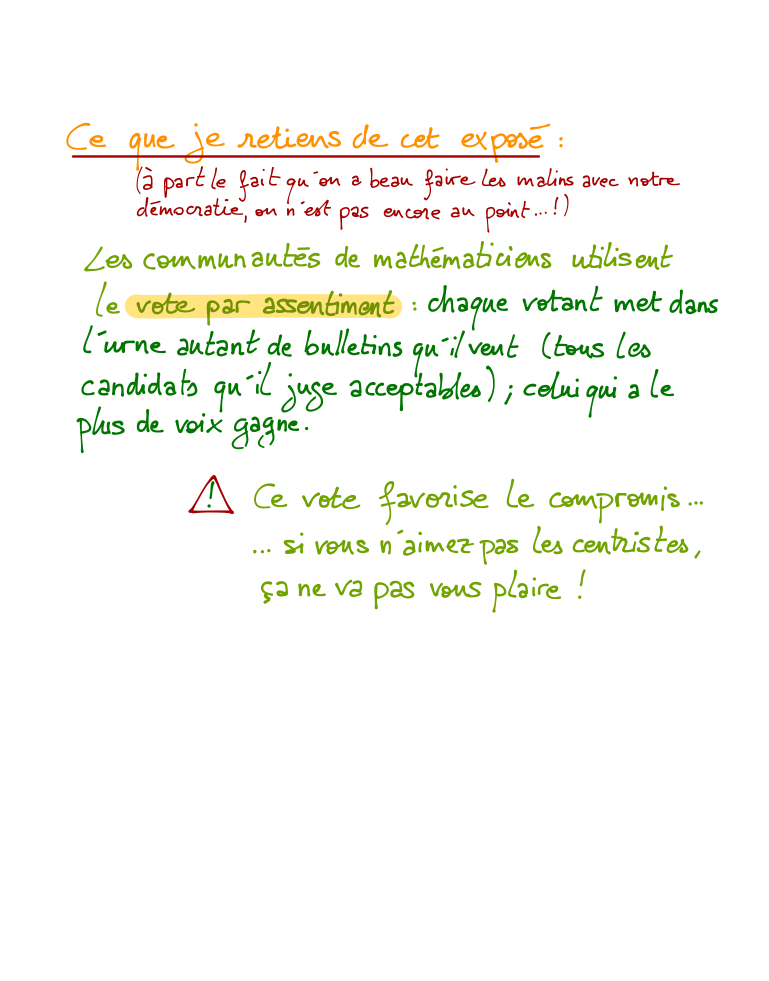 Ce que je retiens de cet exposé :
(à part le fait qu'on a beau faire les malins avec notre
démocratie, on n'est pas encore au point...!)
Les communautés de mathématiciens utilisent
le vote par assentiment : chaque votant met dans
l'urne autant de bulletins qu'il veut (tous les
candidats qu'il juge acceptables) ; celui qui a le
plus de voix gagne.
! Ce vote favorise le compromis...
... si vous n'aimez pas les centristes,
ça ne va pas vous plaire !